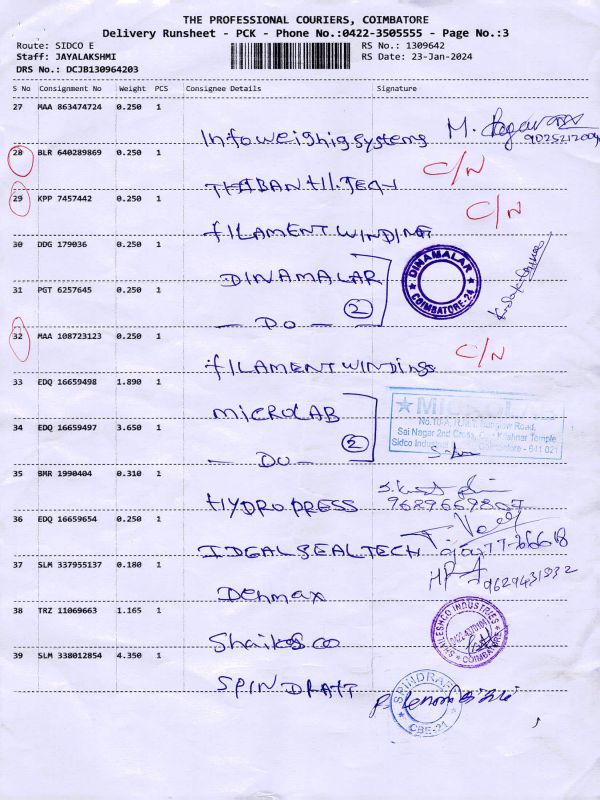 THE PROFESSIONAL COURIERS, COIMBATORE
Delivery Runsheet - PCK - Phone No.:0422-3505555 - Page No.:3
Route: SIDCO E RS No.: 1309642
Staff: JAYALAKSHMI RS Date: 23-Jan-2024
DRS No.: DCJB130964203
S No Consignment No Weight PCS Consignee Details Signature
27 MAA 863474724 0.250 1
Infoweighigsystems M.
28 BLR 640289869 0.250 1
C/N
29 KPP 7457442 0.250 1
FILAMENT WINDING C/N
30 DDG 179036 0.250 1
DINAMALAR DINAMALAR COIMBATORE-24
31 PGT 6257645 0.250 1
2
— DO —
32 MAA 108723123 0.250 1
filament windings C/N
33 EDQ 16659498 1.890 1
MICROLAB
34 EDQ 16659497 3.650 1
2
Sai Nagar 2nd Cross, Temple
Sidco Coimbatore - 641 021
— DO —
35 BMR 1990404 0.310 1
HYDROPRESS
36 EDQ 16659654 0.250 1
IDEAL SEAL TECH
37 SLM 337955137 0.180 1
Denmax 9629431932
38 TRZ 11069663 1.165 1
SHAILESHCO INDUSTRIES COIMBATORE
39 SLM 338012854 4.350 1
SPINDRAFT SPINDRAFT CBE-21